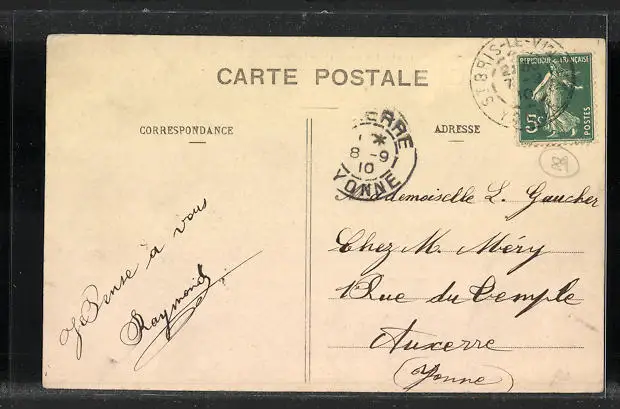 CARTE POSTALE
CORRESPONDANCE
ADRESSE
ST BRIS-LE-
REPUBLIQUE FRANÇAISE
5c
POSTES
ERRE
1 *
8 -9
10
YONNE
Je Pense à vous
Raymond
Mademoiselle L. Gaucher
Chez M. Méry
1 Rue du Temple
Auxerre
(Yonne)